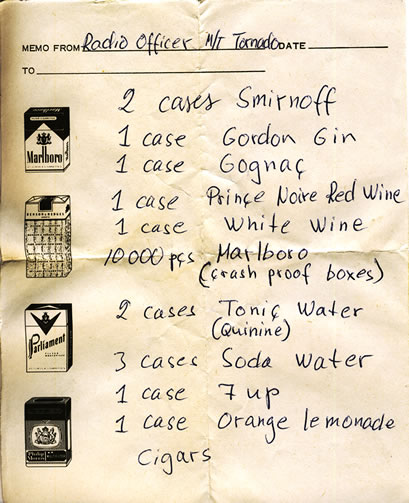 MEMO FROM Radio Officer M/T Tornado DATE
TO
2 cases Smirnoff
1 case Gordon Gin
Marlboro
1 case Gognaç
1 case Prinçe Noire Red Wine
1 case White Wine
10 000 pçs Marlboro
(çrash proof boxes)
2 cases Toniç Water
(Quinine)
Parliament
3 cases Soda Water
1 case 7 up
1 case Orange lemonade
Philip Morris
Cigars